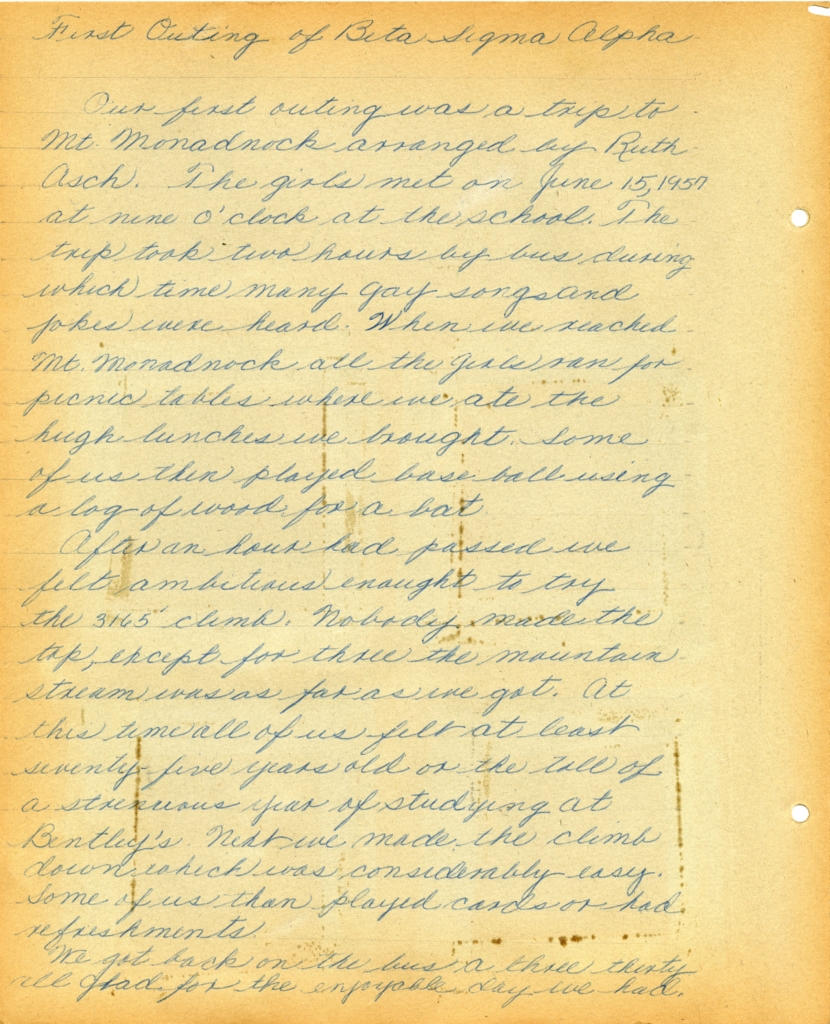 First Outing of Beta Sigma Alpha
Our first outing was a trip to
Mt. Monadnock arranged by Ruth
Asch. The girls met on June 15, 1957
at nine o'clock at the school. The
trip took two hours by bus during
which time many gay songs and
jokes were heard. When we reached
Mt. Monadnock all the girls ran for
picnic tables where we ate the
hugh lunches we brought. Some
of us then played base ball using
a log of wood for a bat
After an hour had passed we
felt ambitious enought to try
the 3165' climb. Nobody made the
top, except for three the mountain
stream was as far as we got. At
this time all of us felt at least
seventy-five years old or the toll of
a strenuous year of studying at
Bentley's. Next we made the climb
down which was considerably easy.
Some of us than played cards or had
refreshments.
We got back on the bus a three thirty
all glad for the enjoyable day we had.